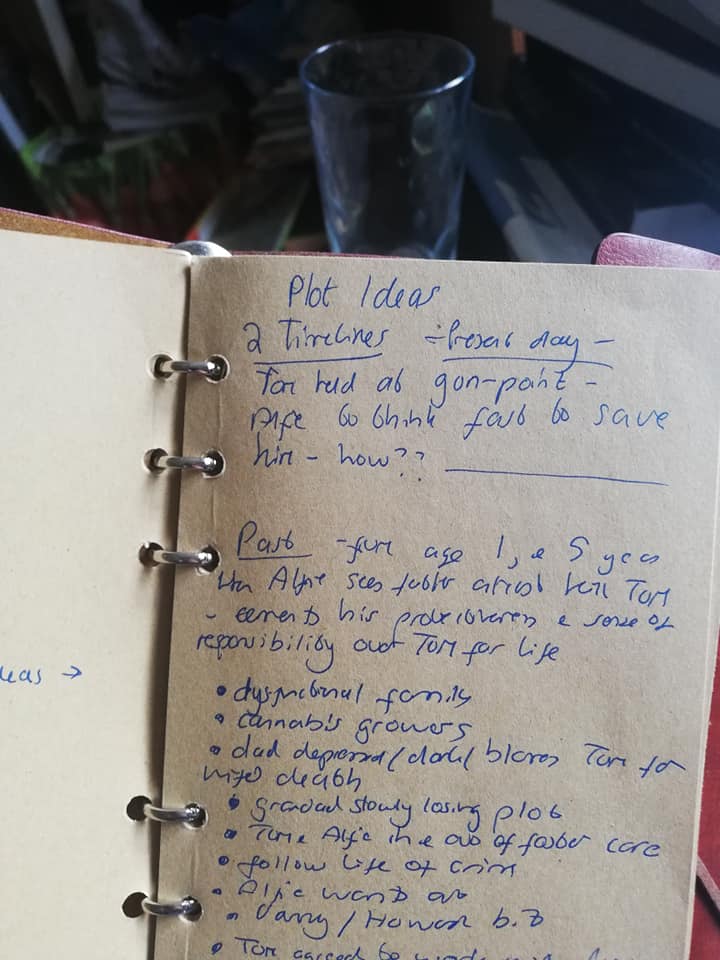 Plot Ideas
2 Timelines - Present day -
Tom held at gun-point -
Alfie to think fast to save
him - how??
Past - from age 1, 5 years
Alfie sees father almost kill Tom
- cements his protectiveness & sense of
responsibility over Tom for life
eas →
• dysfunctional family
• cannabis growers
• dad depressed/dark/blames Tom for
wife's death
• grandad slowly losing plot
• Tom & Alfie in & out of foster care
• follow life of crime
• Alfie wants out
• Danny/Howard b.b
• Tom